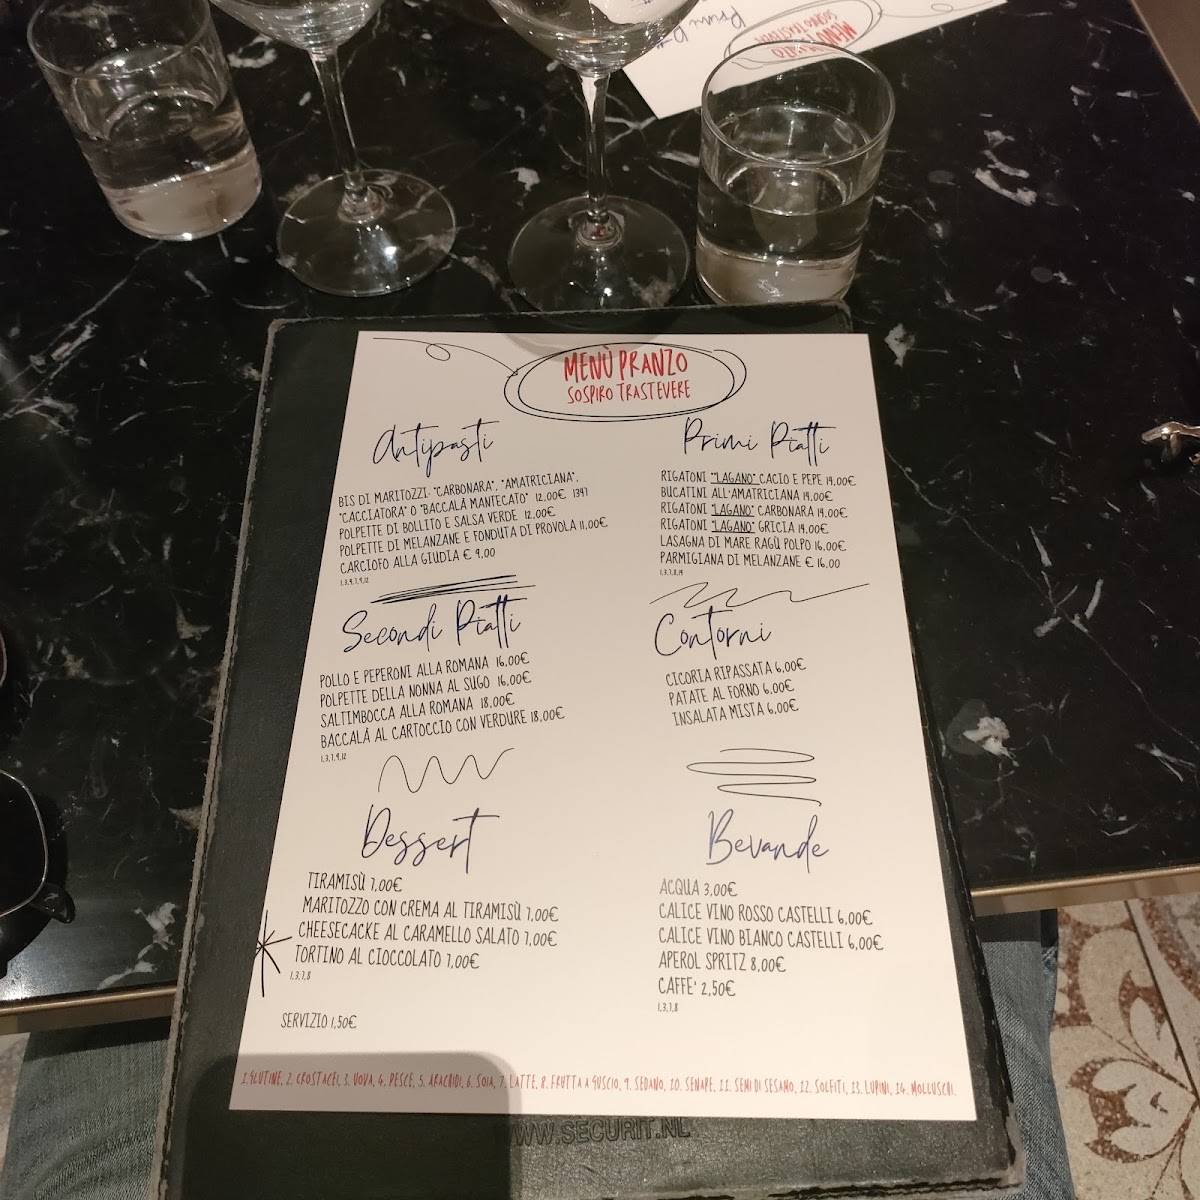 MENÙ PRANZO
SOSPIRO TRASTEVERE
Antipasti
BIS DI MARITOZZI: "CARBONARA", "AMATRICIANA",
"CACCIATORA" O "BACCALÀ MANTECATO" 12,00€ 1347
POLPETTE DI BOLLITO E SALSA VERDE 12,00€
POLPETTE DI MELANZANE E FONDUTA DI PROVOLA 11,00€
CARCIOFO ALLA GIUDIA € 9,00
1,3,4,7,9,12
Primi Piatti
RIGATONI "LAGANO" CACIO E PEPE 14,00€
BUCATINI ALL'AMATRICIANA 14,00€
RIGATONI "LAGANO" CARBONARA 14,00€
RIGATONI "LAGANO" GRICIA 14,00€
LASAGNA DI MARE RAGÙ POLPO 16,00€
PARMIGIANA DI MELANZANE € 16,00
1,3,7,8,14
Secondi Piatti
POLLO E PEPERONI ALLA ROMANA 16,00€
POLPETTE DELLA NONNA AL SUGO 16,00€
SALTIMBOCCA ALLA ROMANA 18,00€
BACCALÀ AL CARTOCCIO CON VERDURE 18,00€
1,3,7,9,12
Contorni
CICORIA RIPASSATA 6,00€
PATATE AL FORNO 6,00€
INSALATA MISTA 6,00€
Dessert
TIRAMISÙ 7,00€
MARITOZZO CON CREMA AL TIRAMISÙ 7,00€
CHEESECACKE AL CARAMELLO SALATO 7,00€
TORTINO AL CIOCCOLATO 7,00€
1,3,7,8
Bevande
ACQUA 3,00€
CALICE VINO ROSSO CASTELLI 6,00€
CALICE VINO BIANCO CASTELLI 6,00€
APEROL SPRITZ 8,00€
CAFFE' 2,50€
1,3,7,8
SERVIZIO 1,50€
1.GLUTINE, 2. CROSTACEI, 3. UOVA, 4. PESCE, 5. ARACHIDI, 6. SOIA, 7. LATTE, 8. FRUTTA A GUSCIO, 9. SEDANO, 10. SENAPE, 11. SEMI DI SESAMO, 12. SOLFITI, 13. LUPINI, 14. MOLLUSCHI.
WWW.SECURIT.NL